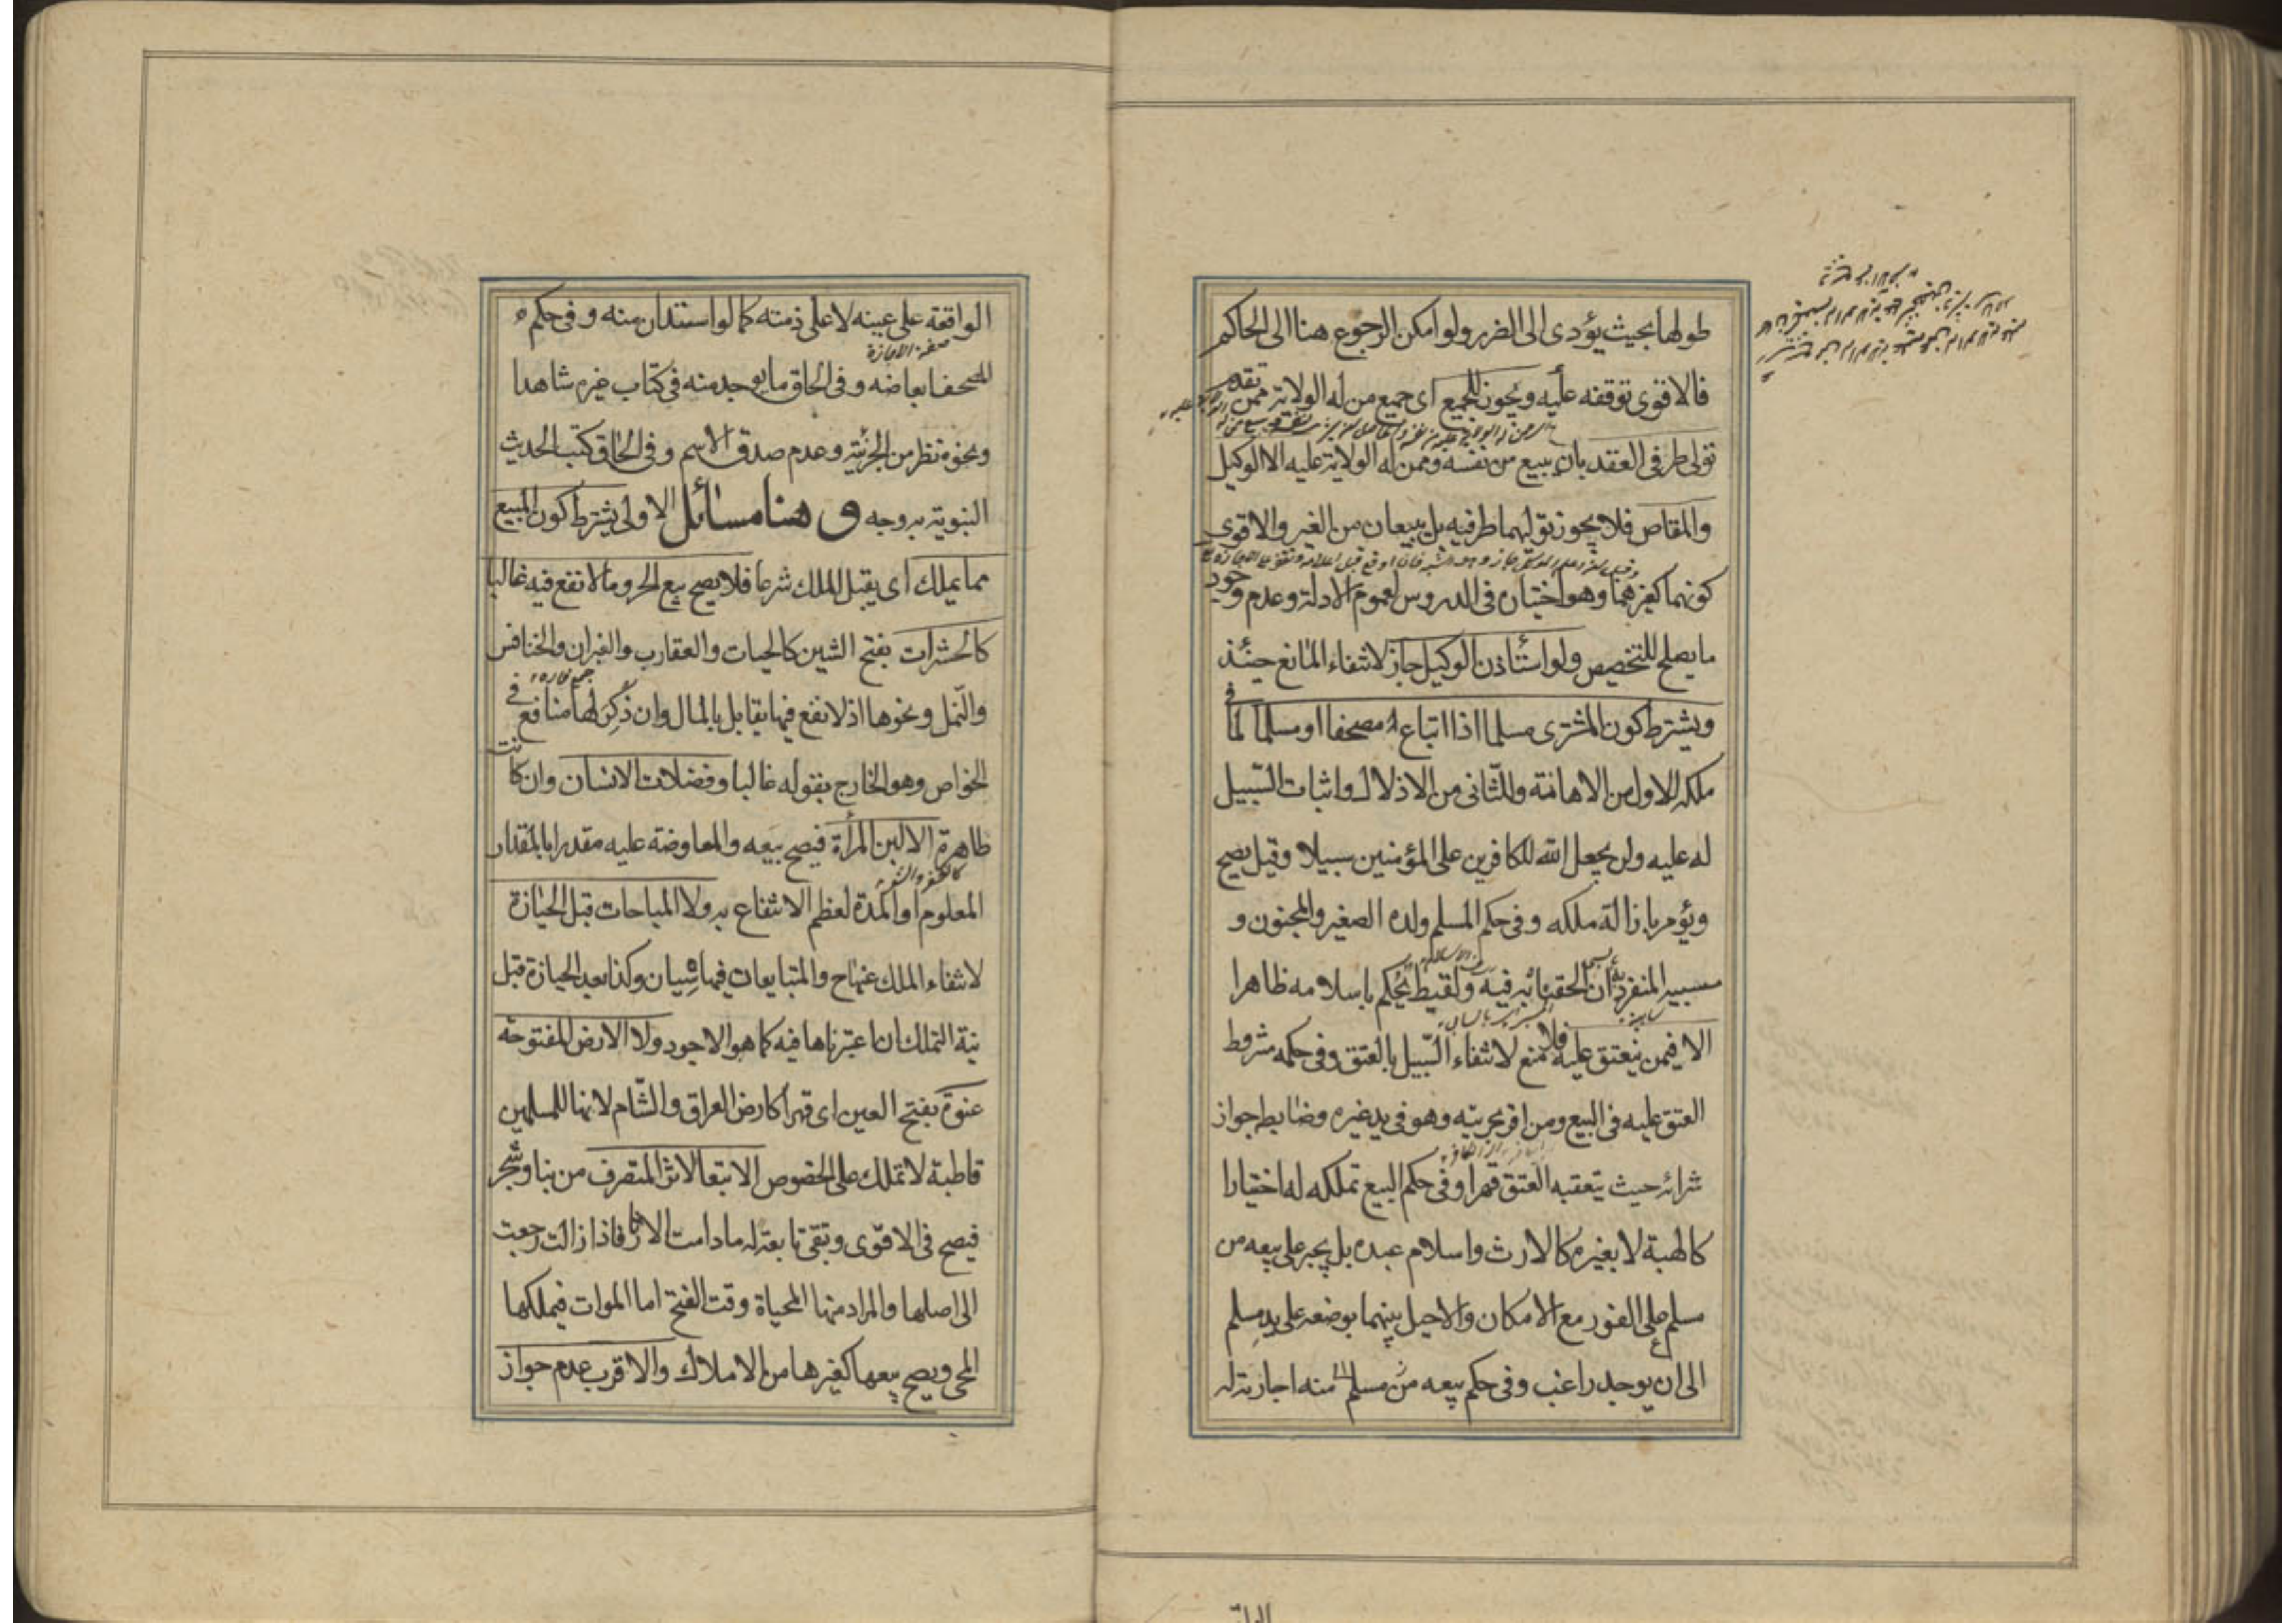 طولها بحيث يؤدى الى الضرر ولو امكن الرجوع هنا الى الحاكم
فالاقوى توقفه عليه ويجوز للجميع اى جميع من له الولاية ممن تقدم
تولى طرفى العقد بان يبيع من نفسه وممن له الولاية عليه الا الوكيل
والمقاص فلا يجوز توليهما طرفيه بل يبيعان من الغير والاقوى
كونهما كغيرهما وهو اختياره فى الدروس لعموم الادلة وعدم وجود
ما يصلح للتخصيص ولو استأذن الوكيل جاز لانتفاء المانع حينئذ
ويشترط كون المشترى مسلما اذا ابتاع مصحفا او مسلما لما فى
ملكه للاول من الاهانة وللثانى من الاذلال واثبات السبيل
له عليه ولن يجعل الله للكافرين على المؤمنين سبيلا وقيل يصح
ويؤمر بازالة ملكه وفى حكم المسلم ولده الصغير والمجنون و
مسبيه المنفرد به ان الحقناه به فيه ولقيط يحكم باسلامه ظاهرا
الا فيمن ينعتق عليه فلا منع لانتفاء السبيل بالعتق وفى حكمه مشروط
العتق عليه فى البيع ومن اقر بحريته وهو فى يد غيره وضابطه جواز
شرائه حيث يتعقبه العتق قهرا وفى حكم البيع تملكه له اختيارا
كالهبة لا بغيره كالارث واسلام عبده بل يجبر على بيعه من
مسلم على الفور مع الامكان والا حيل بينهما بوضعه على يد مسلم
الى ان يوجد راغب وفى حكم بيعه من مسلم منه اجارته له
الواقعة على عينه لا على ذمته كما لو استدان منه وفى حكم
المصحف ابعاضه وفى الحاق ما يوجد منه فى كتاب غيره شاهدا
ونحوه نظر من الجزئية وعدم صدق الاسم وفى الحاق كتب الحديث
النبوية به وجه وهنا مسائل الاولى يشترط كون المبيع
مما يملك اى يقبل الملك شرعا فلا يصح بيع الحر وما لا نفع فيه غالبا
كالحشرات بفتح الشين كالحيات والعقارب والفيران والخنافس
والنمل ونحوها اذ لا نفع فيها يقابل بالمال وان ذكر لها منافع فى
الخواص وهو الخارج بقوله غالبا وفضلات الانسان وان كانت
طاهرة الا لبن المرأة فيصح بيعه والمعاوضة عليه مقدرا بالمقدار
المعلوم او المدة لعظم الانتفاع به ولا المباحات قبل الحيازة
لانتفاء الملك عنها ح والمتبايعان فيها سيان وكذا بعد الحيازة قبل
نية التملك ان اعتبرناها فيه كما هو الاجود ولا الارض المفتوحة
عنوة بفتح العين اى قهرا كارض العراق والشام لانها للمسلمين
قاطبة لا تملك على الخصوص الا تبعا لاثار المتصرف من بنا وشجر
فيصح فى الاقوى وتبقى تابعة له ما دامت الاثار فاذا زالت رجعت
الى اصلها والمراد منها المحياة وقت الفتح اما الموات فيملكها
المحى ويصح بيعها كغيرها من الاملاك والاقرب عدم جواز